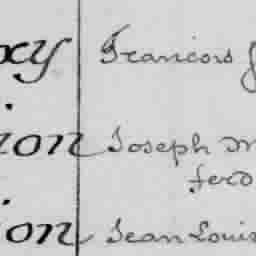 xy Francois J
ion Joseph M
ferd
ion Jean Louis